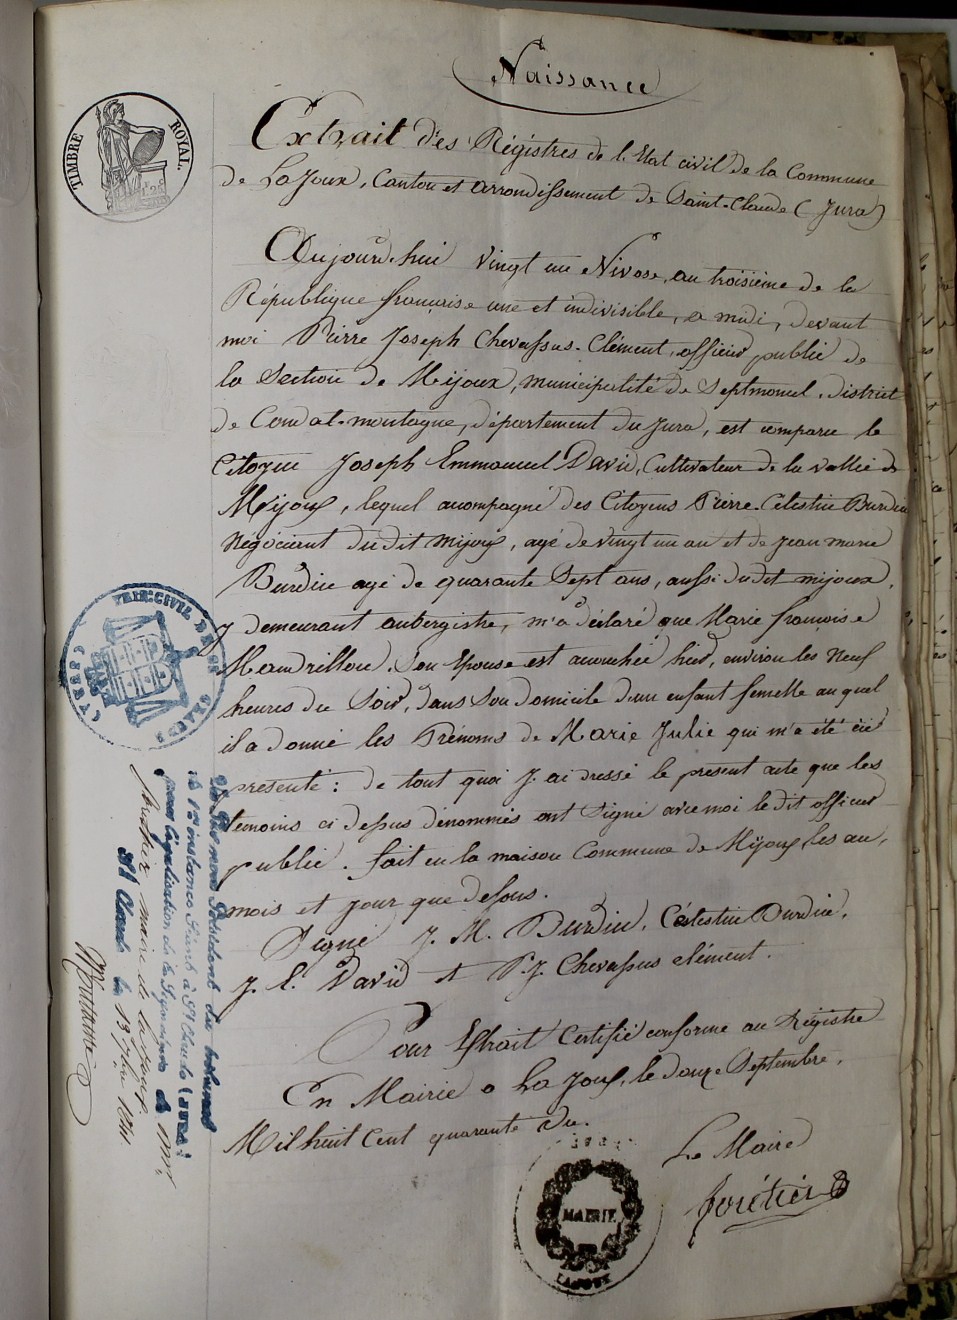 Naissance
TIMBRE ROYAL.
Extrait des Régistres de l'Etat civil de la Commune
de LaJoux, Canton et arrondissement de Saint-Claude (Jura)
Aujourd-hui vingt un Nivose, an troisième de la
République française une et indivisible, a midi, devant
moi Pierre Joseph Chevassus-Clément, officier public de
la Section de Mijoux, municipalité de Septmoncel, district
de Condat-montagne, département du Jura, est comparu le
Citoyen Joseph Emmanuel David, Cultivateur de la vallée de
Mijoux, lequel accompagné des Citoyens Pierre-Célestin Burdin
Négociant du dit Mijoux, agé de vingt un an et de Jean marie
Burdin agé de quarante Sept ans, aussi du dit mijoux,
y demeurant aubergiste, m'a déclaré que Marie françoise
Mandrillon, Son Epouse est accouchée hier, environ les Neuf
heures du Soir, dans Son domicile d'un enfant femelle au quel
il a donné les Prénoms de Marie Julie qui m'a été
présenté : de tout quoi J'ai dressé le présent acte que les
temoins ci dessus dénommés ont Signé avec moi le dit officier
public. fait en la maison Commune de Mijoux, les an,
mois et jour que dessus.
Signé J. M. Burdin, Célestin Burdin,
J. E. David et P. J. Chevassus clément.
Pour Extrait Certifié conforme au Régistre
En Mairie a La Joux, le douze Septembre,
Mil huit Cent quarante Du.
Le Maire
MAIRIE
LAJOUX
TRIB: CIVIL DE
(JURA)
Vu par nous Président du tribunal
de 1re instance Séant à St Claude (JURA)
pour légalisation de la Signature de Mr
maire de la Joux.
St Claude le 13 7bre